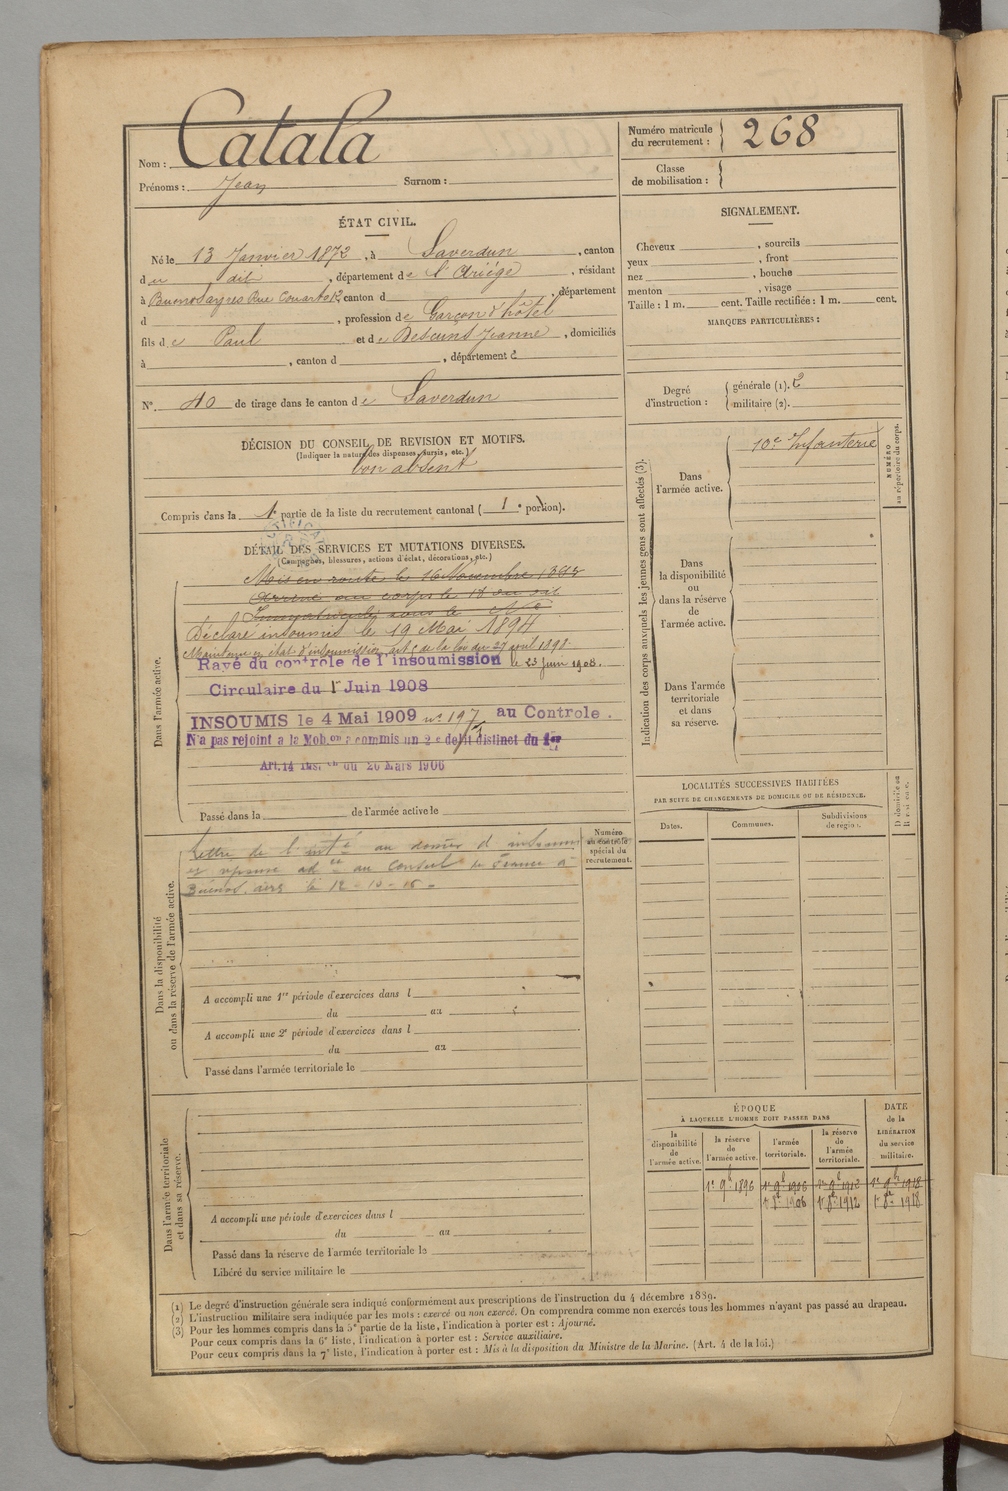 Nom : Catala
Prénoms : Jean Surnom :
Numéro matricule du recrutement : 268
Classe de mobilisation :
ÉTAT CIVIL.
Né le 13 Janvier 1872, à Saverdun, canton
du dit, département de l'Ariège, résidant
à Buenos ayres Rue canton d , département
d , profession de Garçon d'hôtel
fils de Paul et de Jeanne, domiciliés
à , canton d , département d
N° 40 de tirage dans le canton de Saverdun
DÉCISION DU CONSEIL DE REVISION ET MOTIFS.
(Indiquer la nature des dispenses, sursis, etc.)
bon absent
Compris dans la 1e partie de la liste du recrutement cantonal (1e portion).
DÉTAIL DES SERVICES ET MUTATIONS DIVERSES.
(Campagnes, blessures, actions d'éclat, décorations, etc.)
Dans l'armée active.
Mis en route le 16 Novembre 1893
Arrivé au corps le 18 du dit
Immatriculé sous le N°
Déclaré insoumis le 19 Mai 1894
Maintenu en état d'insoumission art 5 de la loi du 27 avril 1898
Rayé du controle de l'insoumission le 23 Juin 1908.
Circulaire du 1r Juin 1908
INSOUMIS le 4 Mai 1909 n° 197 au Controle.
N'a pas rejoint a la Mob.on a commis un 2e délit distinct du 1er
Art.14 Inst.on du 20 Mars 1906
Passé dans la de l'armée active le
Dans la disponibilité ou dans la réserve de l'armée active.
Numéro au contrôle spécial du recrutement.
Lettre de l'int.é au dossier d'insoumis
et réponse ad.ée au Consul de France à
Buenos. aires le 12-10-15
A accompli une 1re période d'exercices dans l
du au
A accompli une 2e période d'exercices dans l
du au
Passé dans l'armée territoriale le
Dans l'armée territoriale et dans sa réserve.
A accompli une période d'exercices dans l
du au
Passé dans la réserve de l'armée territoriale le
Libéré du service militaire le
SIGNALEMENT.
Cheveux , sourcils
yeux , front
nez , bouche
menton , visage
Taille : 1 m. cent. Taille rectifiée : 1 m. cent.
MARQUES PARTICULIÈRES :
Degré d'instruction :
générale (1). 2
militaire (2).
Indication des corps auxquels les jeunes gens sont affectés (3).
NUMÉRO au répertoire du corps.
Dans l'armée active.
10e Infanterie
Dans la disponibilité ou dans la réserve de l'armée active.
Dans l'armée territoriale et dans sa réserve.
LOCALITÉS SUCCESSIVES HABITÉES
PAR SUITE DE CHANGEMENTS DE DOMICILE OU DE RÉSIDENCE.
Dates. Communes. Subdivisions de région.
D domicile ou R résidence.
ÉPOQUE
À LAQUELLE L'HOMME DOIT PASSER DANS
DATE de la LIBÉRATION du service militaire.
la disponibilité de l'armée active.
la réserve de l'armée active.
l'armée territoriale.
la réserve de l'armée territoriale.
1er 9b 1896 1er 9b 1906 1er 9b 1912 1er 9b 1918
1r 8bre 1906 1r 8bre 1912 1r 8bre 1918
(1) Le degré d'instruction générale sera indiqué conformément aux prescriptions de l'instruction du 4 décembre 1889.
(2) L'instruction militaire sera indiquée par les mots : exercé ou non exercé. On comprendra comme non exercés tous les hommes n'ayant pas passé au drapeau.
(3) Pour les hommes compris dans la 5e partie de la liste, l'indication à porter est : Ajourné.
Pour ceux compris dans la 6e liste, l'indication à porter est : Service auxiliaire.
Pour ceux compris dans la 7e liste, l'indication à porter est : Mis à la disposition du Ministre de la Marine. (Art. 4 de la loi.)